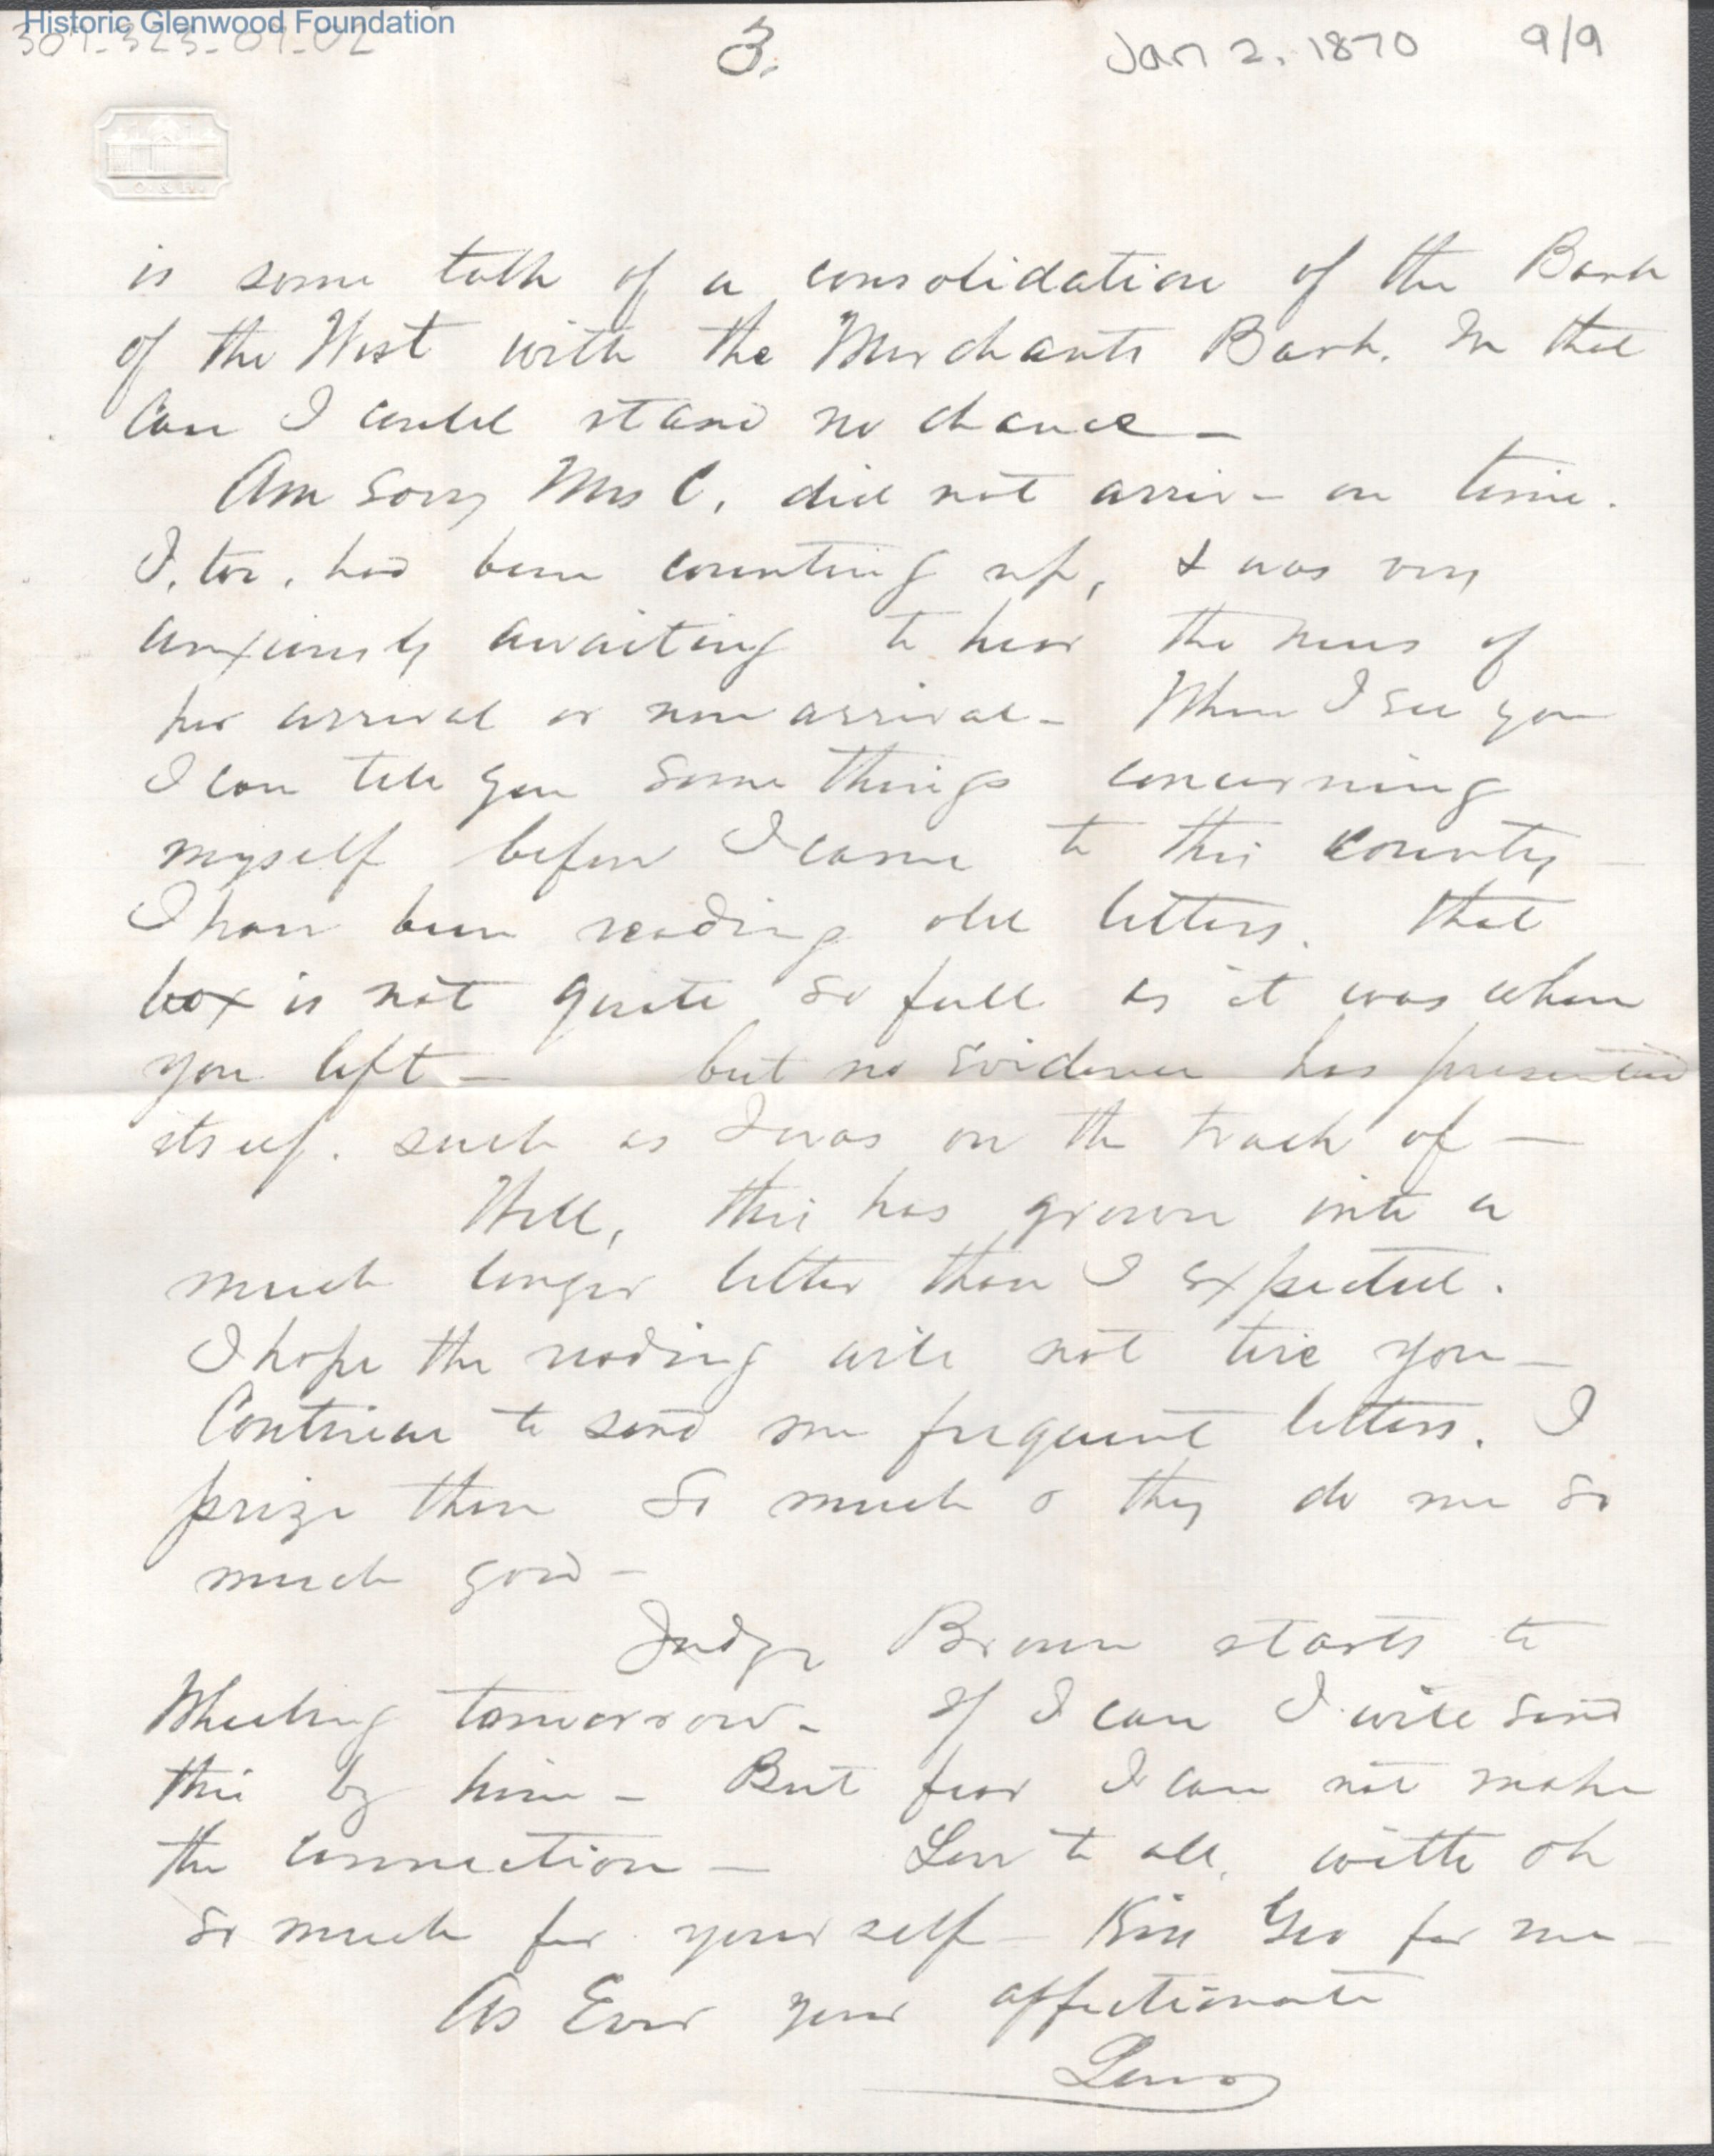 Historic Glenwood Foundation
307-323-01-02
3.
Jan 2, 1870 9/9
is some talk of a consolidation of the Bank
of the West with the Merchants Bank. In that
Case I could stand no chance -
Am sorry Mrs C, did not arrive on time.
I, too, had been counting up, & was very
anxiously awaiting to hear the news of
her arrival or non arrival - When I see you
I can tell you some things concerning
myself before I came to this county -
I have been reading old letters. That
box is not quite so full as it was when
you left - but no evidence has presented
itself. such as I was on the track of -
Well, this has grown into a
much longer letter than I expected.
I hope the reading will not tire you -
Continue to send me frequent letters. I
prize them so much & they do me so
much good -
Judge Brown starts to
Wheeling tomorrow - If I can I will send
this by him - But fear I can not make
the connection - Love to all, with oh
so much for yourself - Kiss Geo for me -
As Ever your affectionate